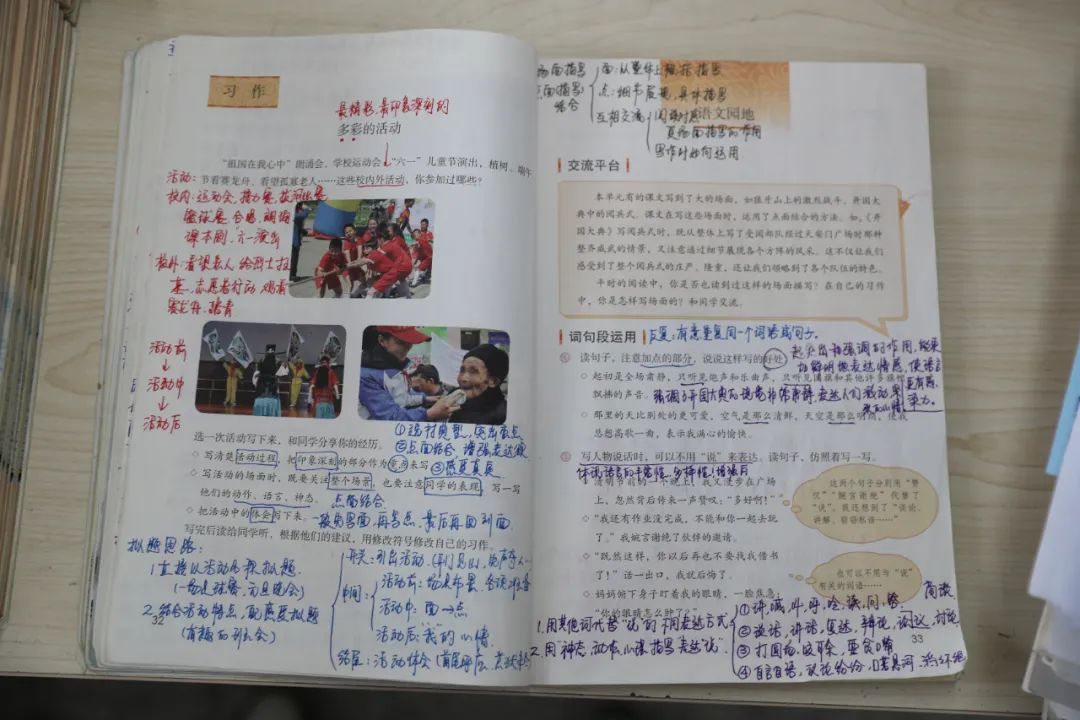 习作
最精彩、最印象深刻的
多彩的活动
“祖国在我心中”朗诵会、学校运动会、“六一”儿童节演出，植树、端午
节看赛龙舟、看望孤寡老人……这些校内外活动，你参加过哪些？
活动：
校内：运动会、接力赛、拔河比赛
篮球赛、合唱、朗诵
课本剧、六一演出
校外：看望老人 给烈士扫
墓、志愿者行动
赛龙舟、踏青
活动前
活动中
活动后
①选材典型，突出重点
选一次活动写下来，和同学分享你的经历。
②点面结合，增强表达效
写清楚活动过程，把印象深刻的部分作为重点来写
③感受真实
写活动的场面时，既要关注整个场景，也要注意同学的表现，写一写
他们的动作、语言、神态。
点面结合
把活动中的体会写下来。
一般先写面，再写点，最后再回到面
写完后读给同学听，根据他们的建议，用修改符号修改自己的习作。
拟题思路：
1.直接以活动名称拟题
(一场足球赛、元旦晚会)
2.结合活动特点、感受拟题
(有趣的班会)
开头：引出活动
中间：
活动前：场边布景、各项准备
活动中：面→点
活动后：我的心情
结尾：活动体会
32
场面描写
点面描写
结合
面：从整体上概括描写
点：细节展现，具体描写
互相交流
阅读时感
受场面描写的作用
写作时如何运用
语文园地
交流平台
本单元有的课文写到了大的场面，如狼牙山上的激烈战斗、开国大
典中的阅兵式。课文在写这些场面时，运用了点面结合的方法。如，《开
国大典》写阅兵式时，既从整体上写了受阅部队经过天安门广场时那种
整齐威武的情景，又注意通过细节展现各个方阵的风采。这不仅让我们
感受到了整个阅兵式的庄严、隆重，还让我们领略到了各个队伍的特色。
平时的阅读中，你是否也读到过这样的场面描写？在自己的习作
中，你是怎样写场面的？和同学交流。
词句段运用
反复：有意重复同一个词语或句子。
读句子，注意加点的部分，说说这样写的好处。
起突出和强调的作用，能更
加鲜明地表达情感，使语言
更有感
染力。
起初是全场肃静，只听见炮声和乐曲声，只听见国旗和其他许多旗帜
飘拂的声音。
强调了开国大典的
表达人们激动
那里的天比别处的更可爱，空气是那么清鲜，天空是那么明朗，使我
总想高歌一曲，表示我满心的愉快。
写人物说话时，可以不用“说”来表达。读句子，仿照着写一写。
清明节前的一个晚上，我又漫步在广场
上，忽然背后传来一声赞叹：“多好啊！”
“我还有作业没完成，不能和你一起去玩
了。”我婉言谢绝了伙伴的邀请。
“既然这样，你以后再也不要找我借书
了！”话一出口，我就后悔了。
妈妈俯下身子盯着我的眼睛，一脸焦急：
“你的眼睛怎么肿了？”
这两个句子分别用“赞
叹”“婉言谢绝”代替了
“说”。我还想到了“谈论、
讲解、窃窃私语……”
也可以不用与“说”
有关的词语……
1.用其他词代替“说”的不同表达方式
①讲、喊、叫、呼、
谈、问、答
商谈
②谈话、讲话、复述、辩论、议论、讨论
2.用“神态、动作、心理描写表达“说”
③打圆场
④自言自语、议论纷纷、口若悬河
33